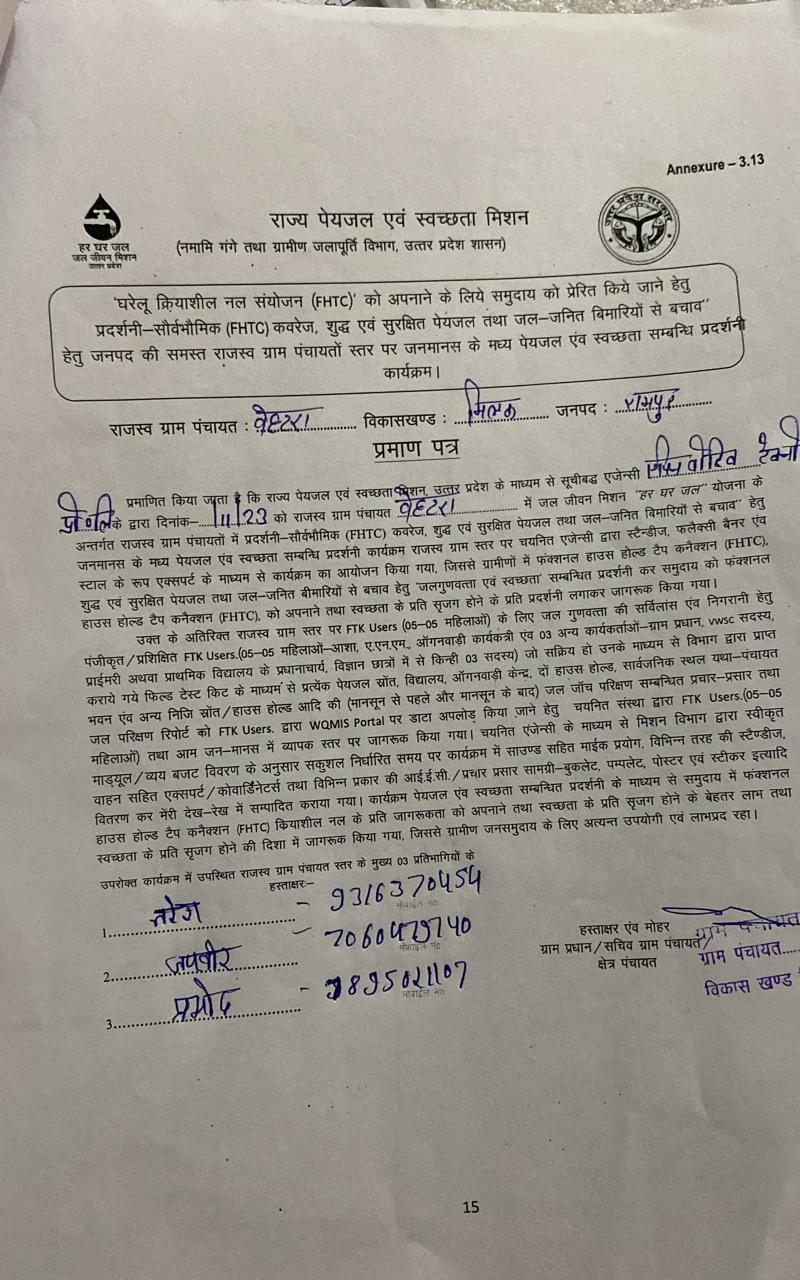 Annexure – 3.13
हर घर जल
जल जीवन मिशन
उत्तर प्रदेश
राज्य पेयजल एवं स्वच्छता मिशन
(नमामि गंगे तथा ग्रामीण जलापूर्ति विभाग, उत्तर प्रदेश शासन)
उत्तर प्रदेश सरकार
'घरेलू क्रियाशील नल संयोजन (FHTC)' को अपनाने के लिये समुदाय को प्रेरित किये जाने हेतु
प्रदर्शनी–सौर्वभौमिक (FHTC) कवरेज, शुद्ध एवं सुरक्षित पेयजल तथा जल–जनित बिमारियों से बचाव''
हेतु जनपद की समस्त राजस्व ग्राम पंचायतों स्तर पर जनमानस के मध्य पेयजल एंव स्वच्छता सम्बन्धि प्रदर्शनी
कार्यक्रम।
राजस्व ग्राम पंचायत : वेहटरा विकासखण्ड : मिलक जनपद : रामपुर
प्रमाण पत्र
प्रमाणित किया जाता है कि राज्य पेयजल एवं स्वच्छता मिशन, उत्तर प्रदेश के माध्यम से सूचीबद्ध एजेन्सी
प्रा० लि० के द्वारा दिनांक–1/11/23 को राजस्व ग्राम पंचायत वेहटरा में जल जीवन मिशन "हर घर जल" योजना के
अन्तर्गत राजस्व ग्राम पंचायतों में प्रदर्शनी–सौर्वभौमिक (FHTC) कवरेज, शुद्ध एवं सुरक्षित पेयजल तथा जल–जनित बिमारियों से बचाव" हेतु
जनमानस के मध्य पेयजल एंव स्वच्छता सम्बन्धि प्रदर्शनी कार्यक्रम राजस्व ग्राम स्तर पर चयनित एजेन्सी द्वारा स्टैन्डीज, फलैक्सी बैनर एंव
स्टाल के रूप एक्सपर्ट के माध्यम से कार्यक्रम का आयोजन किया गया, जिससे ग्रामीणों में फंक्शनल हाउस होल्ड टैप कनैक्शन (FHTC),
शुद्ध एवं सुरक्षित पेयजल तथा जल–जनित बीमारियों से बचाव हेतु 'जलगुणवत्ता एवं स्वच्छता' सम्बन्धित प्रदर्शनी कर समुदाय को फंक्शनल
हाउस होल्ड टैप कनैक्शन (FHTC), को अपनाने तथा स्वच्छता के प्रति सृजग होने के प्रति प्रदर्शनी लगाकर जागरूक किया गया।
उक्त के अतिरिक्त राजस्व ग्राम स्तर पर FTK Users (05–05 महिलाओं) के लिए जल गुणवत्ता की सर्विलांस एंव निगरानी हेतु
पंजीकृत/प्रशिक्षित FTK Users.(05–05 महिलाओं–आशा, ए.एन.एम., ऑगनवाड़ी कार्यकत्री एंव 03 अन्य कार्यकर्ताओं–ग्राम प्रधान, vwsc सदस्य,
प्राईमरी अथवा प्राथमिक विद्यालय के प्रधानाचार्य, विज्ञान छात्रों में से किन्ही 03 सदस्य) जो सक्रिय हो उनके माध्यम से विभाग द्वारा प्राप्त
कराये गये फिल्ड टेस्ट किट के माध्यम से प्रत्येक पेयजल स्रोंत, विद्यालय, ऑगनवाड़ी केन्द्र, दों हाउस होल्ड, सार्वजनिक स्थल यथा–पंचायत
भवन एंव अन्य निजि स्रोंत/हाउस होल्ड आदि की (मानसून से पहले और मानसून के बाद) जल जॉच परिक्षण सम्बन्धित प्रचार–प्रसार तथा
जल परिक्षण रिपोर्ट को FTK Users. द्वारा WQMIS Portal पर डाटा अपलोड़ किया जाने हेतु चयनित संस्था द्वारा FTK Users.(05–05
महिलाओं) तथा आम जन–मानस में व्यापक स्तर पर जागरूक किया गया। चयनित एंजेन्सी के माध्यम से मिशन विभाग द्वारा स्वीकृत
माड्यूल/व्यय बजट विवरण के अनुसार सकुशल निर्धारित समय पर कार्यक्रम में साउण्ड सहित माईक प्रयोग, विभिन्न तरह की स्टैण्डीज,
वाहन सहित एक्सपर्ट/कोवार्डिनेटर्स तथा विभिन्न प्रकार की आई.ई.सी./प्रचार प्रसार सामग्रि–बुकलेट, पम्पलेट, पोस्टर एवं स्टीकर इत्यादि
वितरण कर मेंरी देख–रेख में सम्पादित कराया गया। कार्यक्रम पेयजल एंव स्वच्छता सम्बन्धित प्रदर्शनी के माध्यम से समुदाय में फंक्शनल
हाउस होल्ड टैप कनैक्शन (FHTC) कियाशील नल के प्रति जागरूकता को अपनाने तथा स्वच्छता के प्रति सृजग होने के बेहतर लाभ तथा
स्वच्छता के प्रति सृजग होने की दिशा में जागरूक किया गया, जिससे ग्रामीण जनसमुदाय के लिए अत्यन्त उपयोगी एवं लाभप्रद रहा।
उपरोक्त कार्यक्रम में उपस्थित राजस्व ग्राम पंचायत स्तर के मुख्य 03 प्रतिभागियों के
हस्ताक्षरः–
1. नरेश – 9316370454
मोबाईल नं०
2. जयवीर – 7060479740
मोबाईल नं०
3. प्रमोद – 9895021107
मोबाईल नं०
हस्ताक्षर एंव मोहर
ग्राम प्रधान/सचिव ग्राम पंचायत/
क्षेत्र पंचायत
ग्राम पंचायत
ग्राम पंचायत....
विकास खण्ड
15